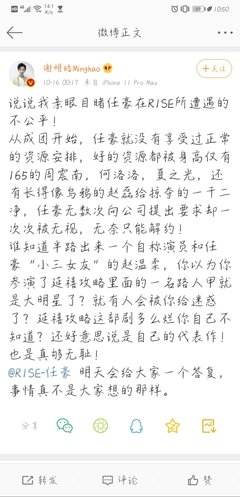 14.1 K/s
1050
微博正文
谢明皓Minghao
10-16 00:17 来自 iPhone 11 Pro Max
+关注
说说我亲眼目睹任豪在RISE所遭遇的
不公平！
从成团开始，任豪就没有享受过正常
的资源安排，好的资源都被身高仅有
165的周震南，何洛洛，夏之光，还
有长得像乌鸦的赵磊给掠夺的一干二
净，任豪无数次向公司提出要求却一
次次被无视，无奈只能解约！
谁知道半路出来一个自称演员和任
豪“小三女友”的赵温柔，你以为你
参演了延禧攻略里面的一名路人甲就
是大明星了？就有人会被你给迷惑
了？延禧攻略这部剧多么烂你自己不
知道？还好意思说是自己的代表作！
也是真够无耻！
@R1SE-任豪 明天会给大家一个答复，
事情真不是大家想的那样。
分享
转发
评论
赞